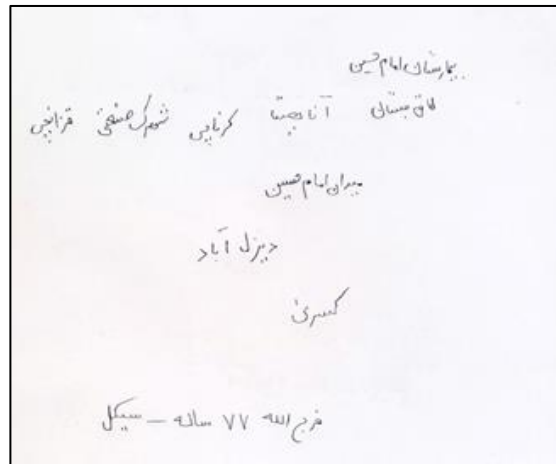 بیمارستان امام حسین
طاق بستان آناهیتا کرناچی شهرک صنعتی قزانچی
میدان امام حسین
دیزل آباد
کسری
فرج الله ۷۷ ساله – سیکل